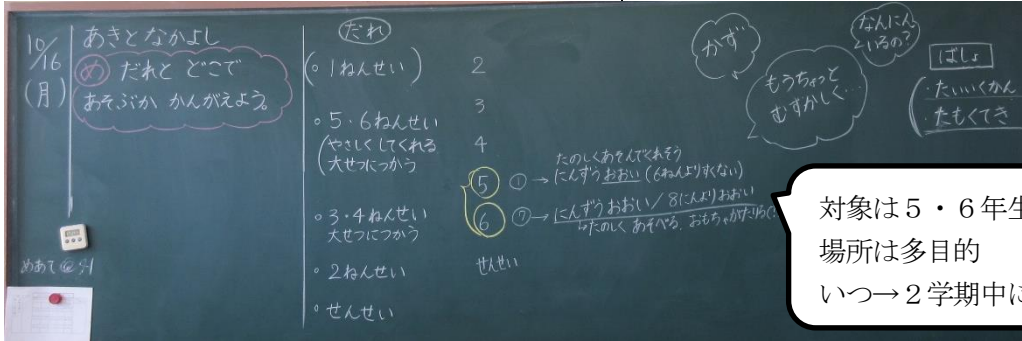 10/16
(月)
あきとなかよし
め だれと どこで
あそぶか かんがえよう。
めあて
だれ
(。1ねんせい)
。5・6ねんせい
(やさしくしてくれる
大せつにつかう
。3・4ねんせい
大せつにつかう
。2ねんせい
。せんせい
2
3
4
5 ① →
たのしくあそんでくれそう
にんずうおおい (6ねんよりすくない)
6 ⑦ → にんずうおおい / 8にんよりおおい
↳たのしく あそべる、おもちゃが
せんせい
かず
なんにん
いるの?
もうちょっと
むずかしく…
ばしょ
・たいいくかん
・たもくてき
対象は5・6年生
場所は多目的
いつ→2学期中に